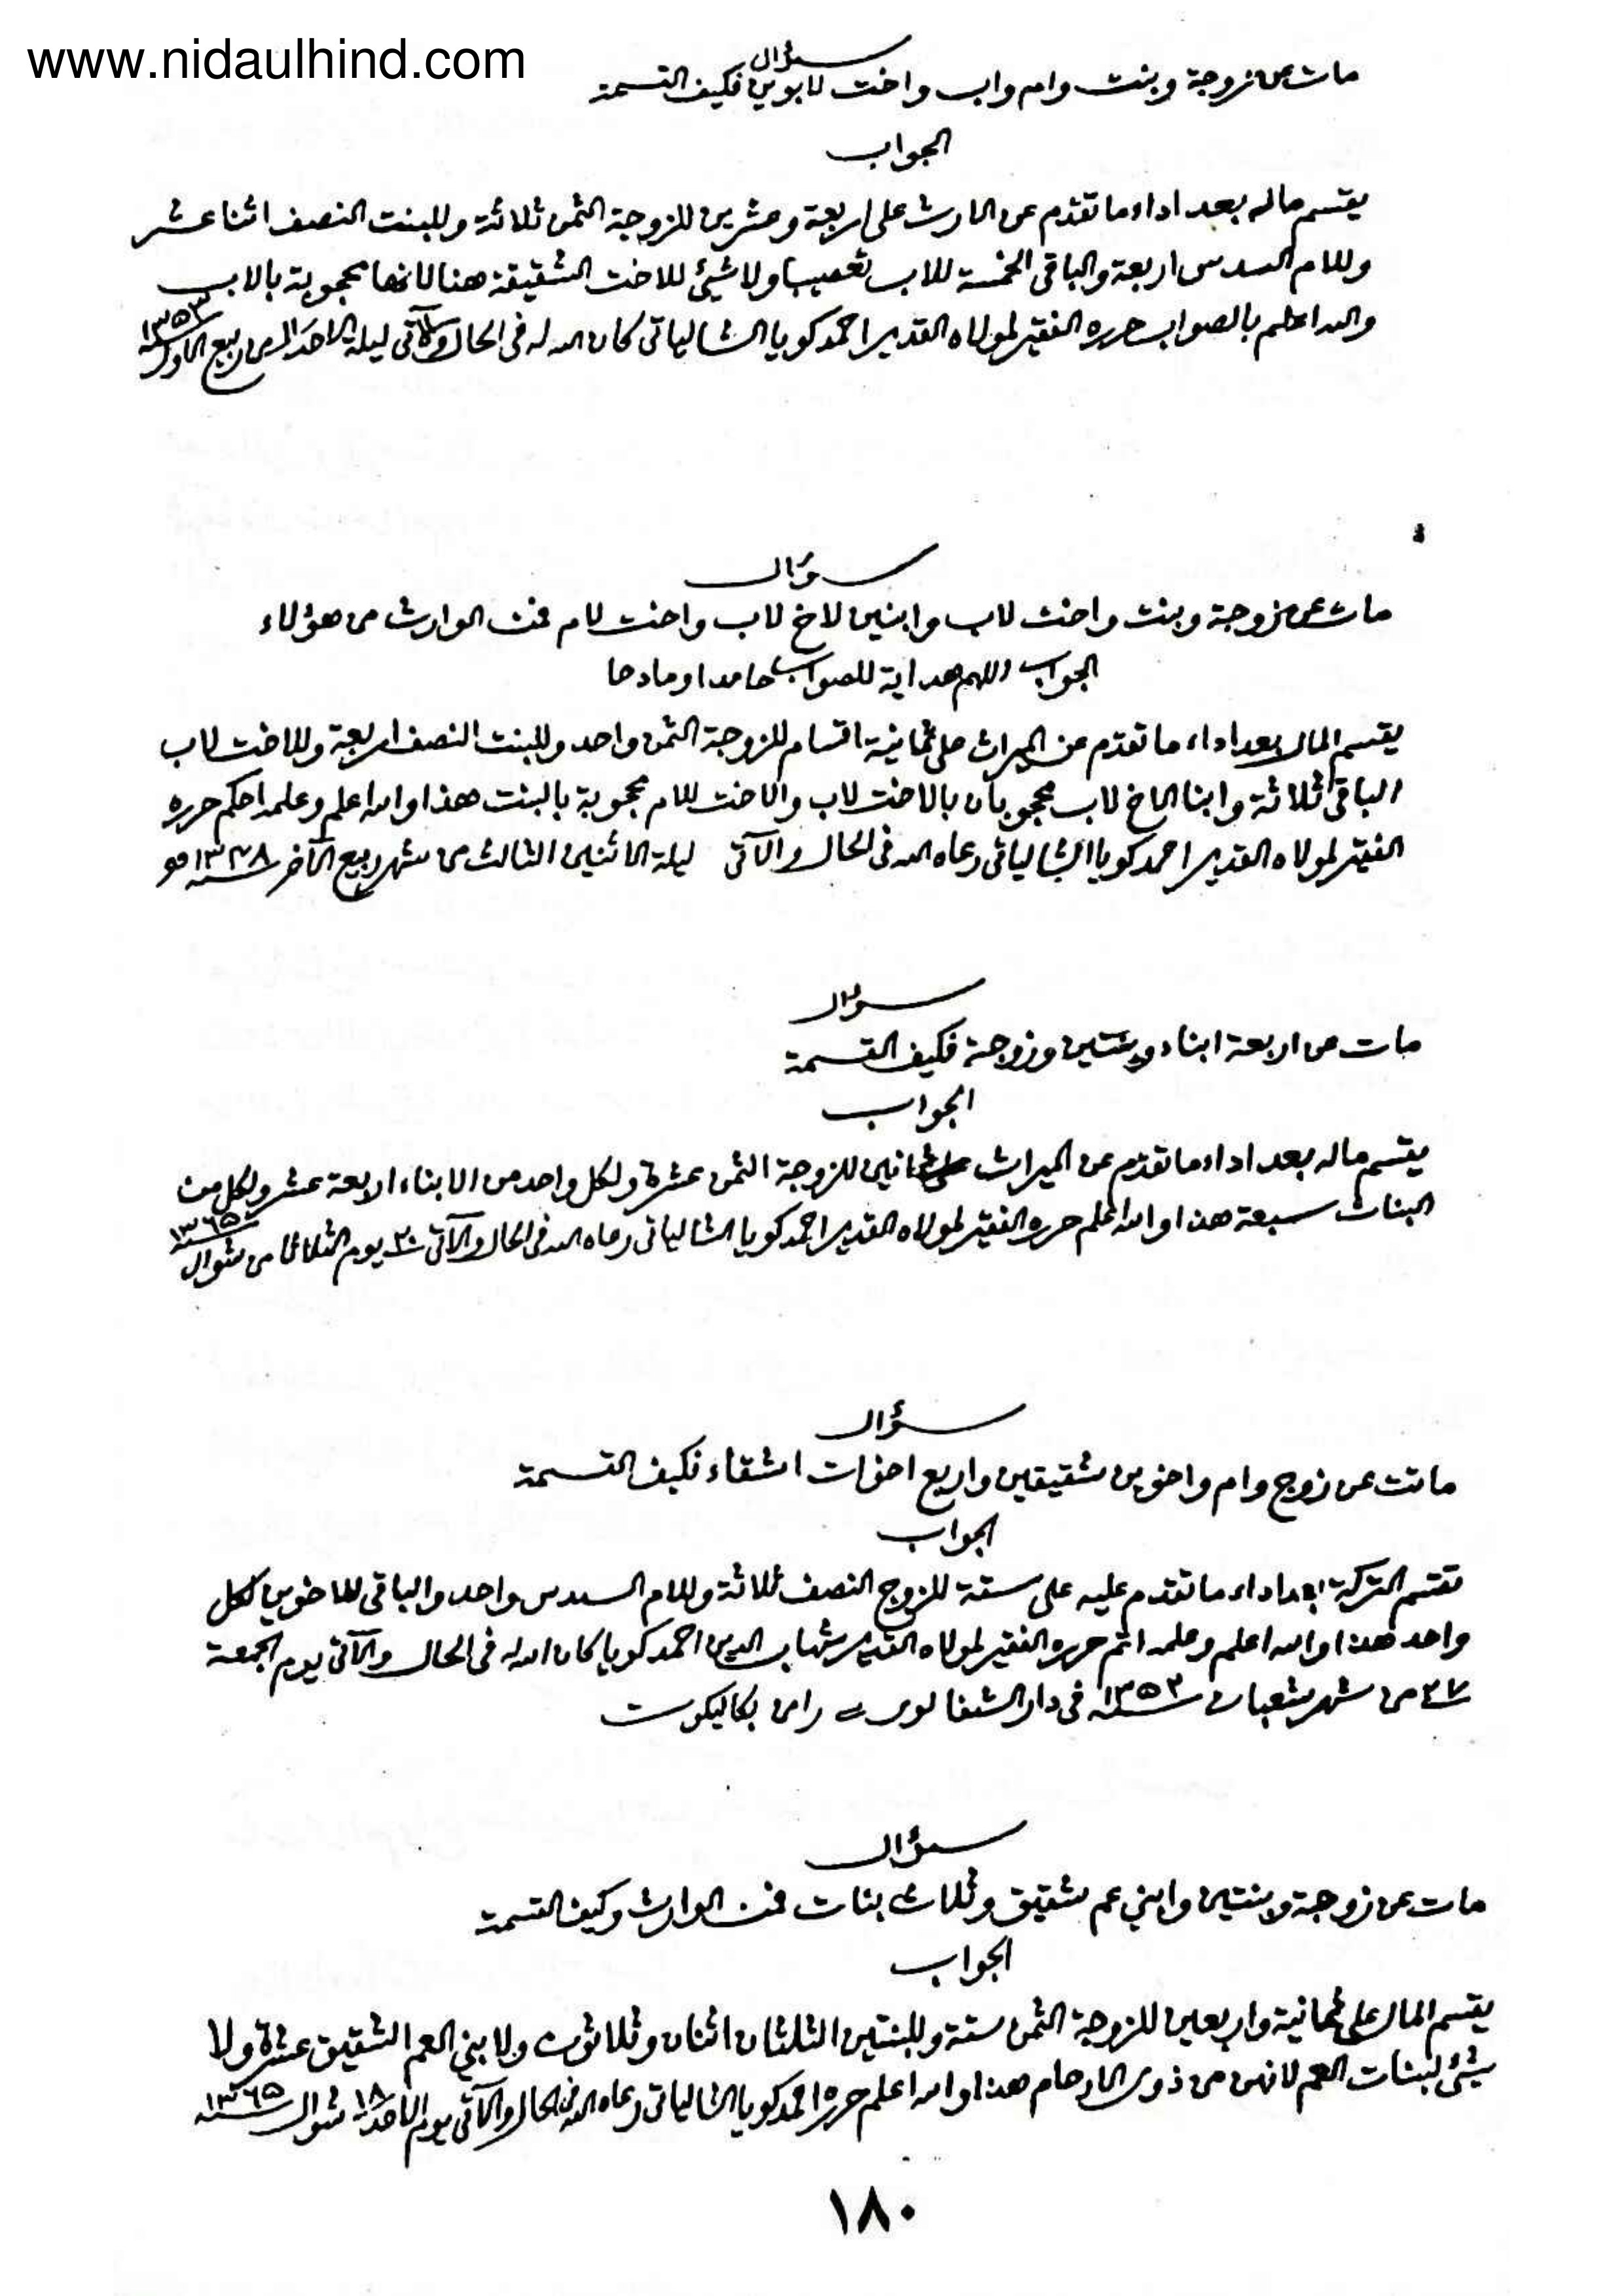 www.nidaulhind.com
سؤال
مات عن زوجة وبنت وام واب واخت لابوين فكيف القسمة
الجواب
يقسم ماله بعد اداء ما تقدم عن الارث على اربعة وعشرين للزوجة الثمن ثلاثة وللبنت النصف اثنا عشر
وللام السدس اربعة والباقي الخمسة للاب تعصيبا ولا شيئ للاخت الشقيقة هنا لانها محجوبة بالاب
والله اعلم بالصواب حرره الفقير لمولاه القدير احمد كويا الشالياتي كان الله له في الحال والآتي ليلة الاحد من ربيع الاول
سنة ١٣٥٣
سؤال
مات عن زوجة وبنت واخت لاب وابنين لاخ لاب واخت لام فمن الوارث من هؤلاء
الجواب اللهم هداية للصواب حامدا ومادحا
يقسم المال بعد اداء ما تقدم عن الميراث على ثمانية اقسام للزوجة الثمن واحد وللبنت النصف اربعة وللاخت لاب
الباقي ثلاثة وابنا الاخ لاب محجوبان بالاخت لاب والاخت للام محجوبة بالبنت هذا والله اعلم وعلمه احكم حرره
الفقير لمولاه القدير احمد كويا الشالياتي رعاه الله في الحال والآتي ليلة الاثنين الثالث من شهر ربيع الآخر سنة
سؤال
مات عن اربعة ابناء وبنتين وزوجة فكيف القسمة
الجواب
يقسم ماله بعد اداء ما تقدم عن الميراث على ثمانين للزوجة الثمن عشرة ولكل واحد من الابناء اربعة عشر ولكل من
البنات سبعة هذا والله اعلم حرره الفقير لمولاه القدير احمد كويا الشالياتي رعاه الله في الحال والآتي ٣٠ يوم الثلاثا من شوال
سنة ١٣٦٥
سؤال
ماتت عن زوج وام واخوين شقيقين واربع اخوات اشقاء فكيف القسمة
الجواب
تقسم التركة بعد اداء ما تقدم عليه على ستة للزوج النصف ثلاثة وللام السدس واحد والباقي للاخوين لكل
واحد هذا والله اعلم وعلمه اتم حرره الفقير لمولاه القدير شهاب الدين احمد كويا كان الله له في الحال والآتي يوم الجمعة
من شهر شعبان سنة ١٣٥٣ في دار الشفا بكاليكوت
سؤال
مات عن زوجة وبنتين وابني عم شقيق وثلاث بنات فمن الوارث وكيف القسمة
الجواب
يقسم المال على ثمانية واربعين للزوجة الثمن ستة وللبنتين الثلثان اثنان وثلاثون ولابني العم الشقيق عشرة ولا
شيئ لبنات العم لانهن من ذوي الارحام هذا والله اعلم حرره احمد كويا الشالياتي رعاه الله في الحال والآتي يوم الاحد ١٨ شوال سنة ١٣٦٥
١٨٠